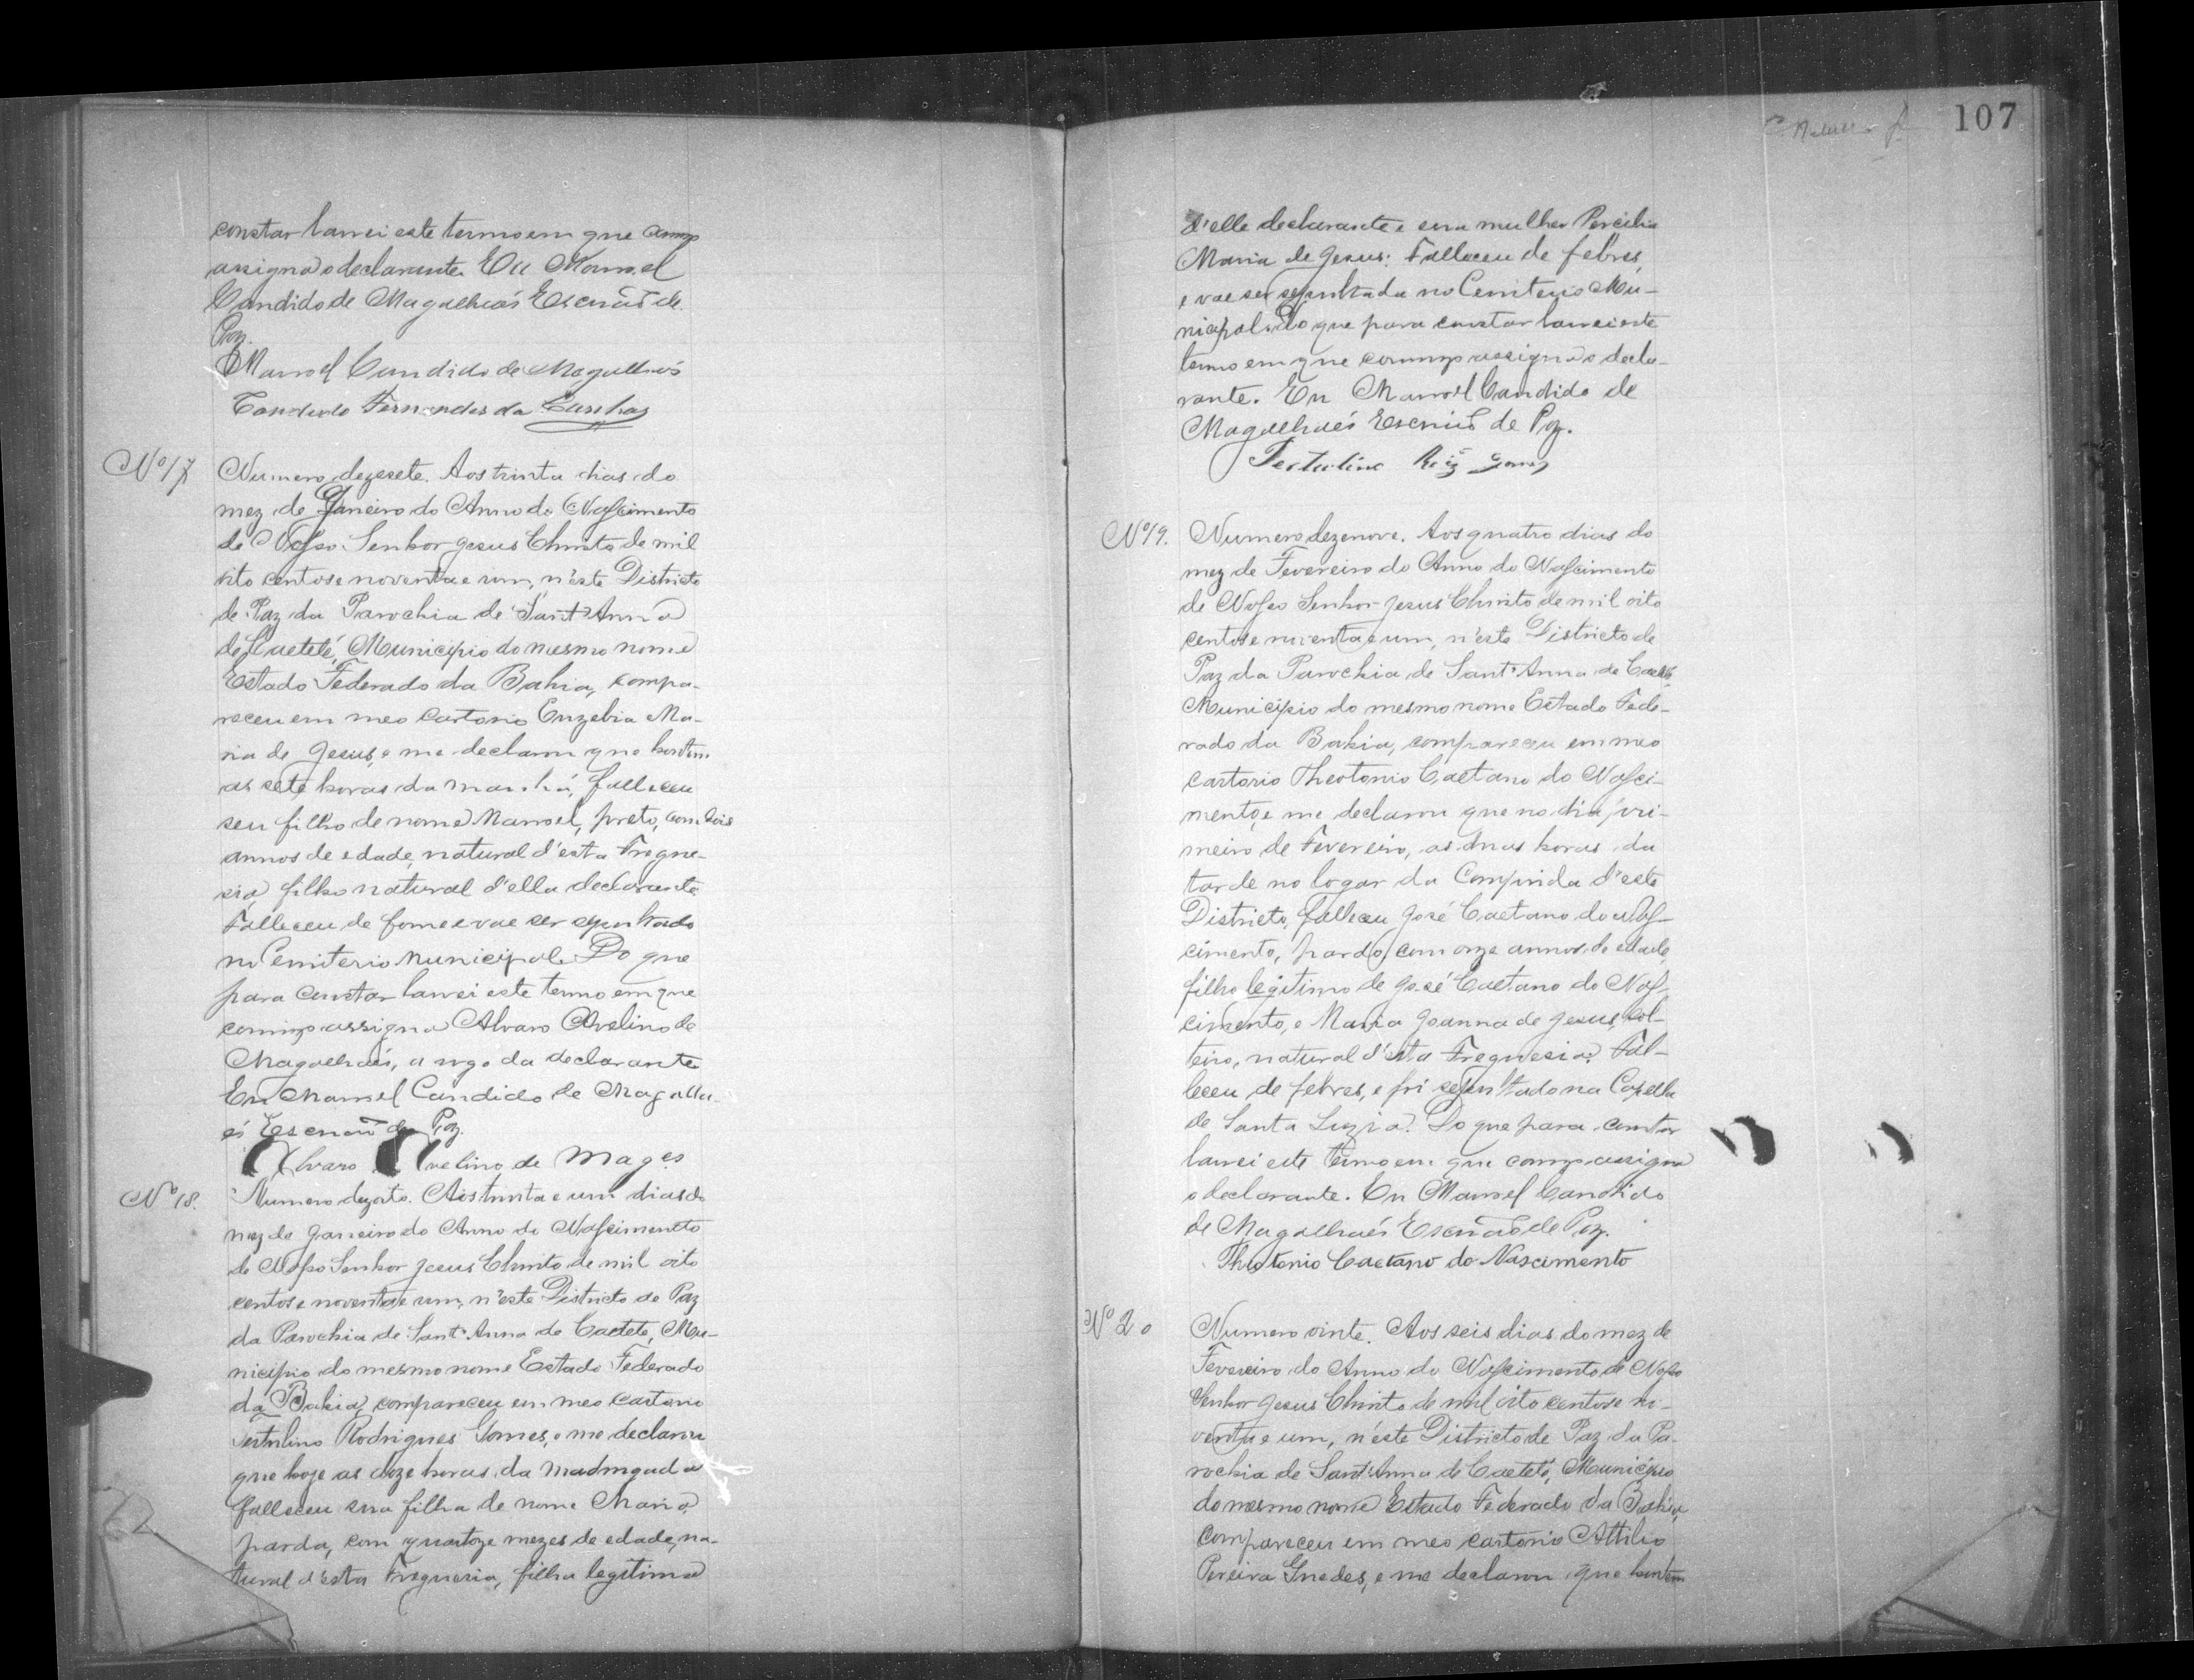 constar lavrei este termo em que comigo
assigna o declarante. Eu Manoel
Candido de Magalhães Escrivão de
Paz.
Manoel Candido de Magalhães
Candido Fernandes da Cunha
Nº 17
Numero dezesete. Aos trinta dias do
mez de Janeiro do Anno do Nascimento
de Nosso Senhor Jesus Christo de mil
oito centos e noventa e um, n'este Districto
de Paz da Parochia de Sant'Anna
de Caeteté, Municipio do mesmo nome
Estado Federado da Bahia, compa-
receu em meo Cartorio Euzebia Ma-
ria de Jesus, e me declarou que hontem
as sete horas da manhã, falleceu
seu filho de nome Manoel, preto, com dois
annos de edade, natural d'esta Fregue-
sia, filho natural d'ella declarante
Falleceu de fome e vae ser sepultado
no Cemiterio Municipal. Do que
para constar lavrei este termo em que
comigo assigna Alvaro Avelino de
Magalhães, a rogo da declarante
Eu Manoel Candido de Magalhã-
es Escrivão de Paz.
Alvaro Avelino de Mages
Nº 18.
Numero dezoito. Aos trinta e um dias do
mez de Janeiro do Anno do Nascimento
de Nosso Senhor Jesus Christo de mil oito
centos e noventa e um, n'este Districto de Paz
da Parochia de Sant'Anna de Caeteté, Mu-
nicipio do mesmo nome Estado Federado
da Bahia, compareceu em meo cartorio
Tertulino Rodrigues Gomes, e me declarou
que hoje as doze horas da madrugada
falleceu sua filha de nome Maria,
parda, com quatorze mezes de edade, na-
tural d'esta Freguesia, filha legitima
107
d'elle declarante e sua mulher Percilia
Maria de Jesus. Falleceu de febres,
e vae ser sepultada no Cemiterio Mu-
nicipal. Do que para constar lavrei este
termo em que commigo assigna o decla-
rante. Eu Manoel Candido de
Magalhães Escrivão de Paz.
Tertulino Roiz Gomes
Nº 19.
Numero dezenove. Aos quatro dias do
mez de Fevereiro do Anno do Nascimento
de Nosso Senhor Jesus Christo de mil oito
centos e noventa e um, n'este Districto de
Paz da Parochia de Sant'Anna de Caeteté,
Municipio do mesmo nome Estado Fede-
rado da Bahia, compareceu em meo
cartorio Theotonio Caetano do Nasci-
mento, e me declarou que no dia pri-
meiro de Fevereiro, as duas horas da
tarde no logar da Comprida d'este
Districto, falleceu José Caetano do Nas-
cimento, pardo, com onze annos de edade,
filho legitimo de José Caetano do Nas-
cimento, e Maria Joanna de Jesus, sol-
teiro, natural d'esta Freguesia. Fal-
leceu de febres, e foi sepultado na Capella
de Santa Luzia. Do que para constar
lavrei este termo em que comigo assigna
o declarante. Eu Manoel Candido
de Magalhães Escrivão de Paz.
Theotonio Caetano do Nascimento
Nº 20
Numero vinte. Aos seis dias do mez de
Fevereiro do Anno do Nascimento de Nosso
Senhor Jesus Christo de mil oito centos e no-
venta e um, n'este Districto de Paz da Pa-
rochia de Sant'Anna de Caeteté, Municipio
do mesmo nome Estado Federado da Bahia,
compareceu em meo cartorio Attilio
Pereira Guedes, e me declarou que hontem